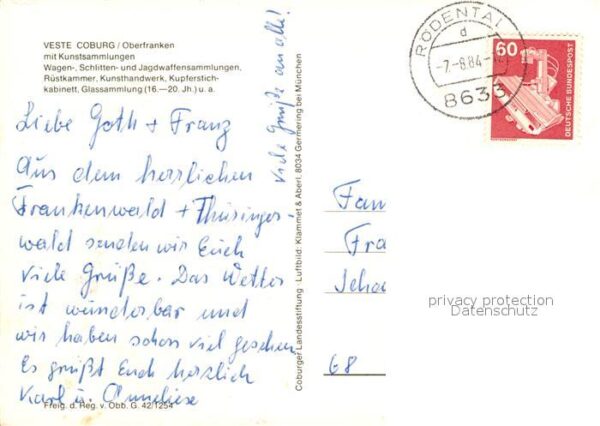 VESTE COBURG / Oberfranken
mit Kunstsammlungen
Wagen-, Schlitten- und Jagdwaffensammlungen,
Rüstkammer, Kunsthandwerk, Kupferstich-
kabinett, Glassammlung (16.—20. Jh.) u. a.
Liebe Goth + Franz
Aus dem herrlichen
Frankenwald + Thüringer-
wald senden wir Euch
viele Grüße. Das Wetter
ist wunderbar und
wir haben schon viel gesehen
Es grüßt Euch herzlich
Karl u. Anneliese
Freig. d. Reg. v. Obb. G. 42/1254
Viele Grüße an alle!
Coburger Landesstiftung · Luftbild: Klammet & Aberl, 8034 Germering bei München
RÖDENTAL
d
-7.-8.84-
8633
60
DEUTSCHE BUNDESPOST
Fam
Fra
Scha
68
privacy protection
Datenschutz